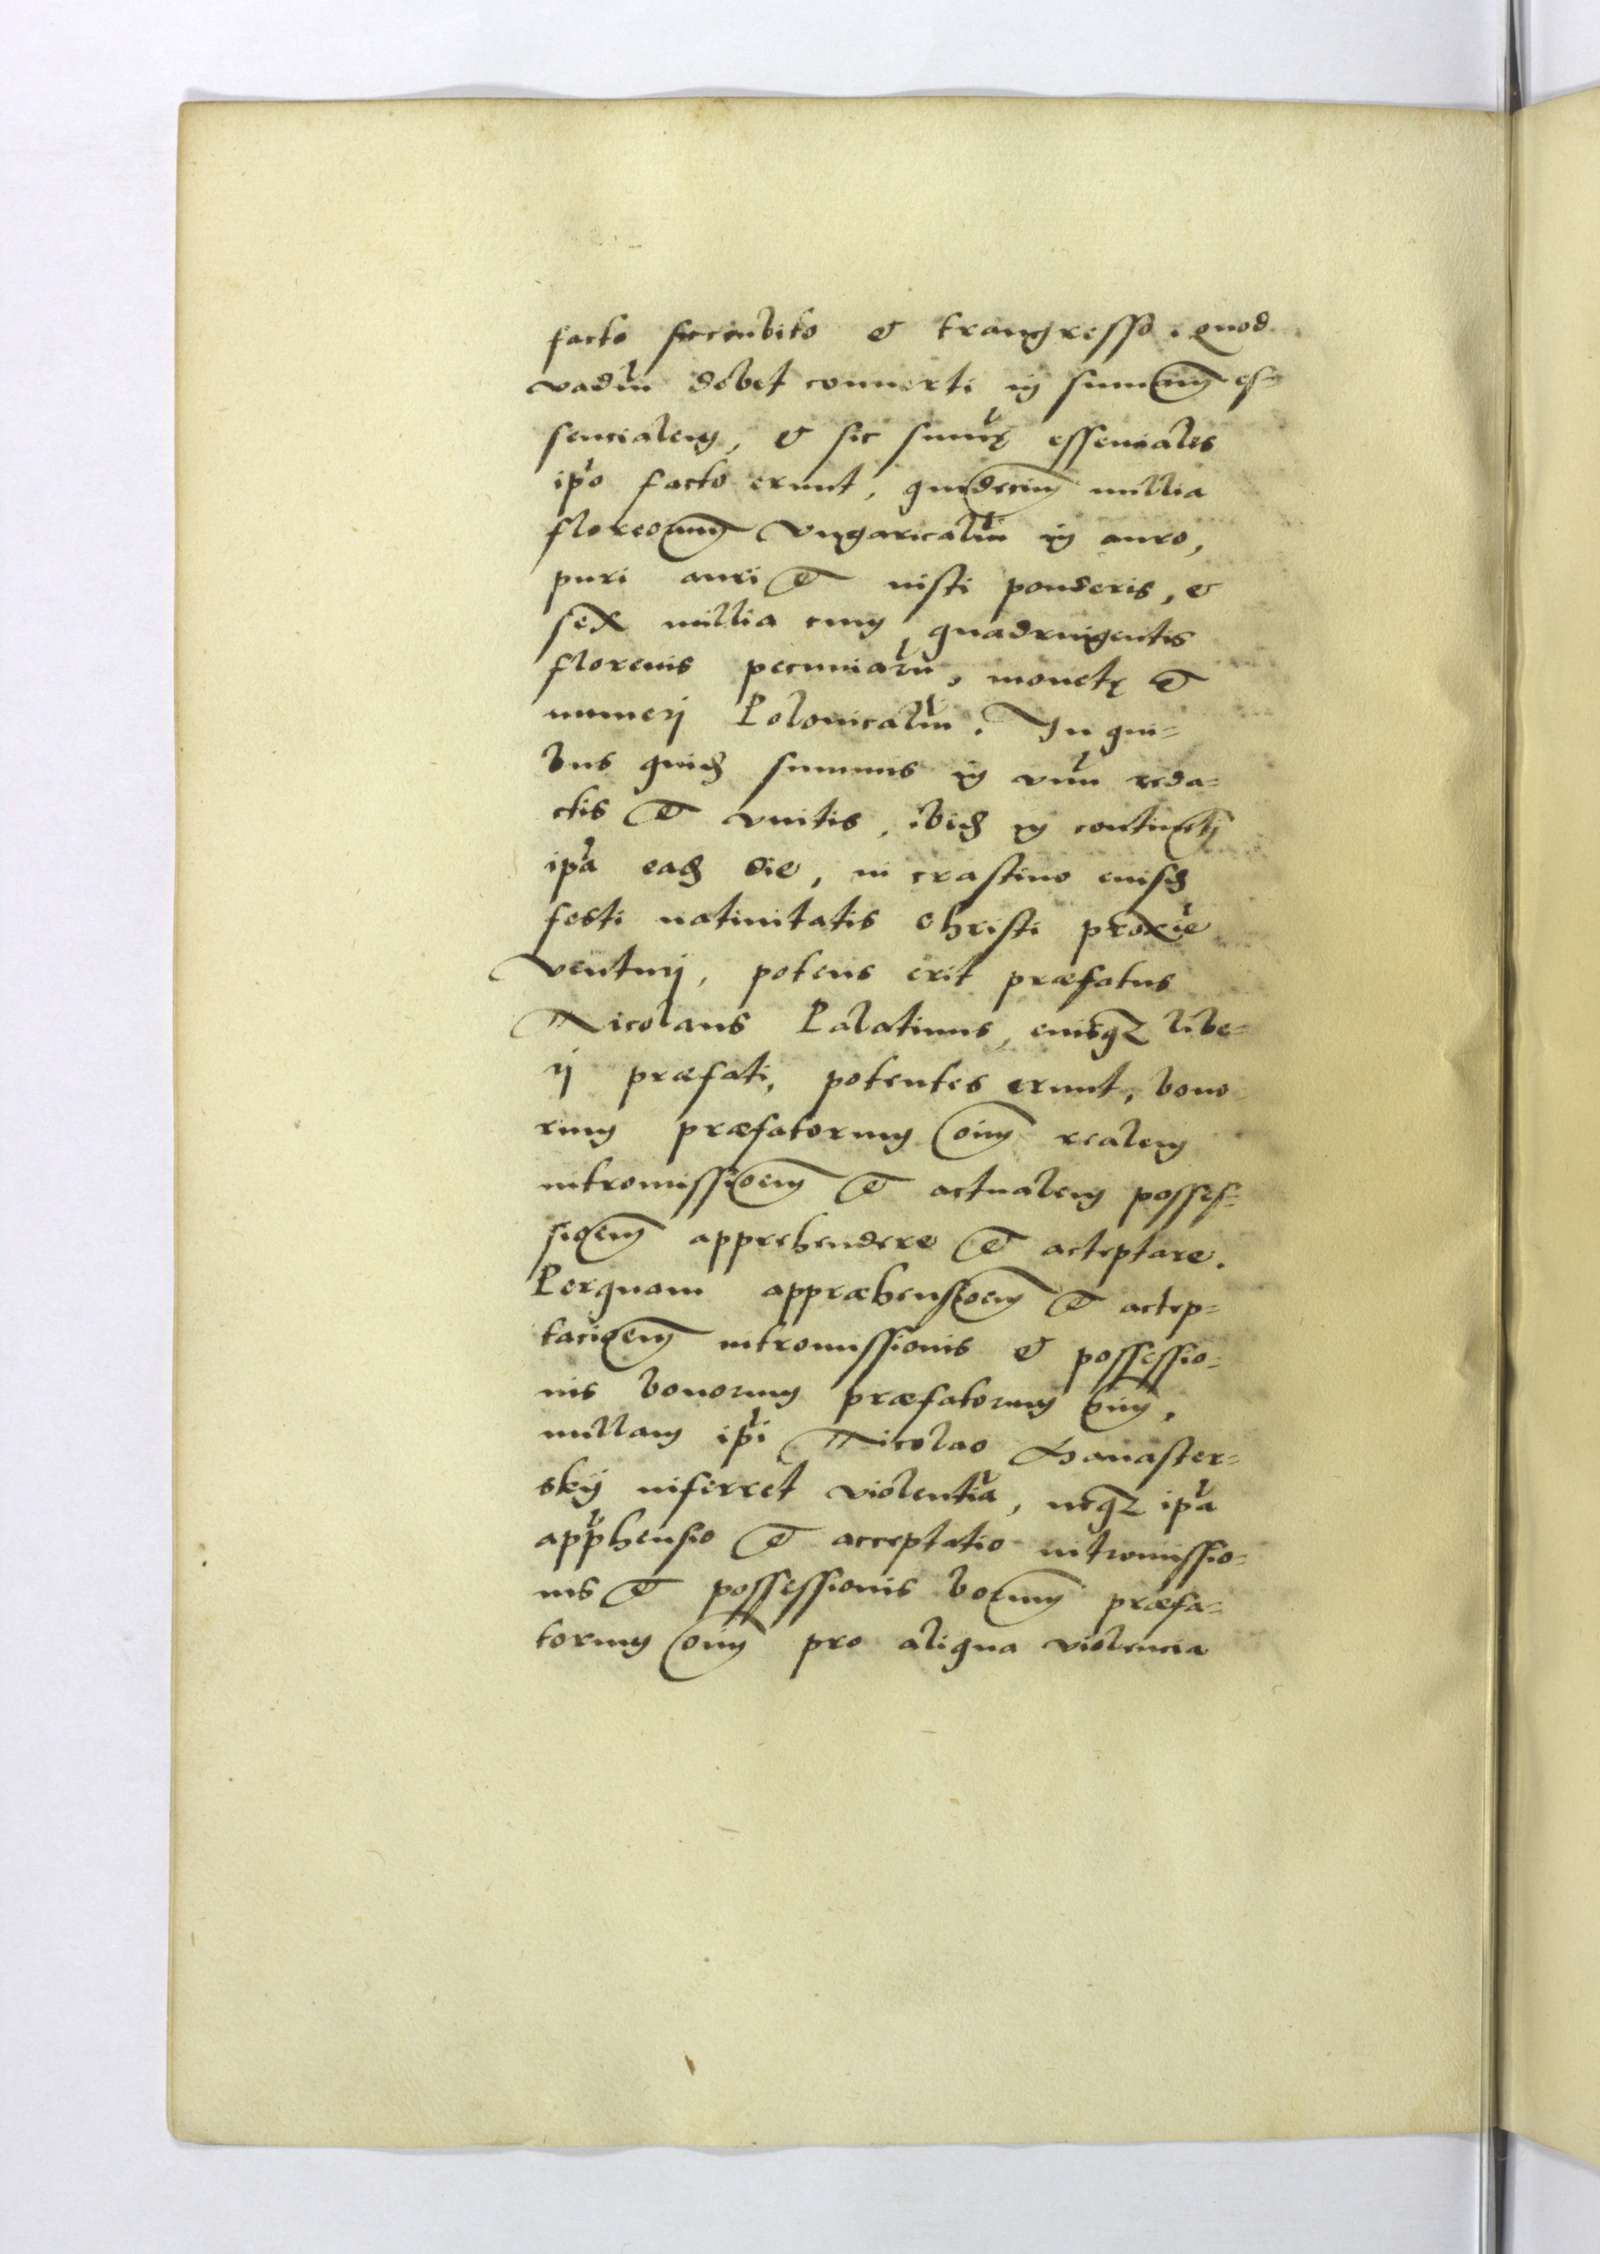 facto succubito et transgresso. Quod
vadiũ debet conuerti in summam es=
sencialem, et sic summę essenciales
ip̃o facto erunt, quindecim millia
floreorum Vngaricaliũ in auro,
puri auri et iusti ponderis, et
sex millia cum quadringentis
florenis pecuniarũ, monetę et
numerj Polonicaliũ. In qui=
bus quid summis in vnũ reda=
ctis et vnitis, ibid in continenti
ip̃a ead die, in crastino eiusd
festi natiuitatis Christi proxie
venturj, potens erit præfatus
Nicolaus Palatinus, eiusq libe=
rj præfati, potentes erunt, bono
rum præfatorum oim realem
intromissioem et actualem posses=
sioem apprehendere et acceptare.
Per quam appræhensioem et accep=
tacioem intromissionis et possessio=
nis bonorum præfatorum oim,
nullam ip̃i Nicolao Hanaster=
skij inferret violentiã, neq ip̃a
apphensio et acceptatio intromissio=
nis et possessionis bonorum præfa=
torum oim pro aliqua violencia